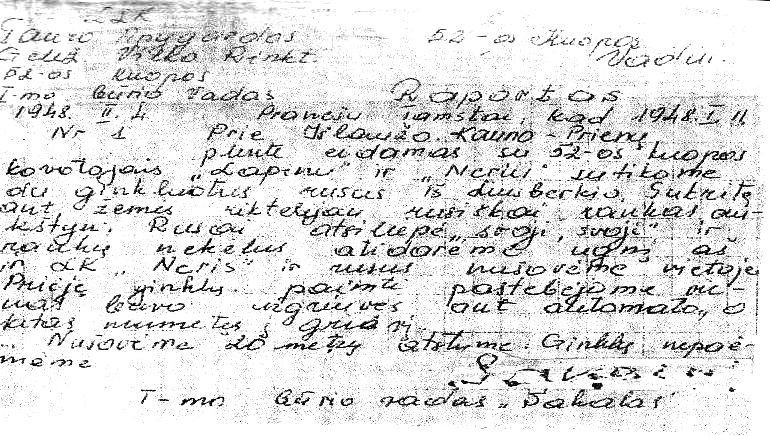 LLK
Tauro Apygardos 52-os Kuopos
Gelež Vilko Rinkt. Vadui.
52-os kuopos
I-mo Būrio Vadas Raportas
1948. II. 4 Pranešu Tamstai, kad 1948. I. 11
Nr 1 Prie Išlaužo. Kauno-Prienų
plente eidamas su 52-os kuopos
kovotojais „Lapinu" ir „Neriu" sutikome
du ginkluotus rusus iš Sukritę
ant žemės riktelėjau rusiškai rankas au-
kštyn. Rusai atsiliepė „svoji, svoji" ir
rankų nekėlus atidarėme ugnį aš
ir LK „Neris" ir rusus nušovėme vietoje
Priėję ginklų paimti pastebėjome vie-
nas buvo ugriuvęs ant automato, o
kitas numetęs į griovį
.. Nušovėme 20 metrų atstume. Ginklų nepaė-
mėme
I-mo Būrio vadas „Šakalas"